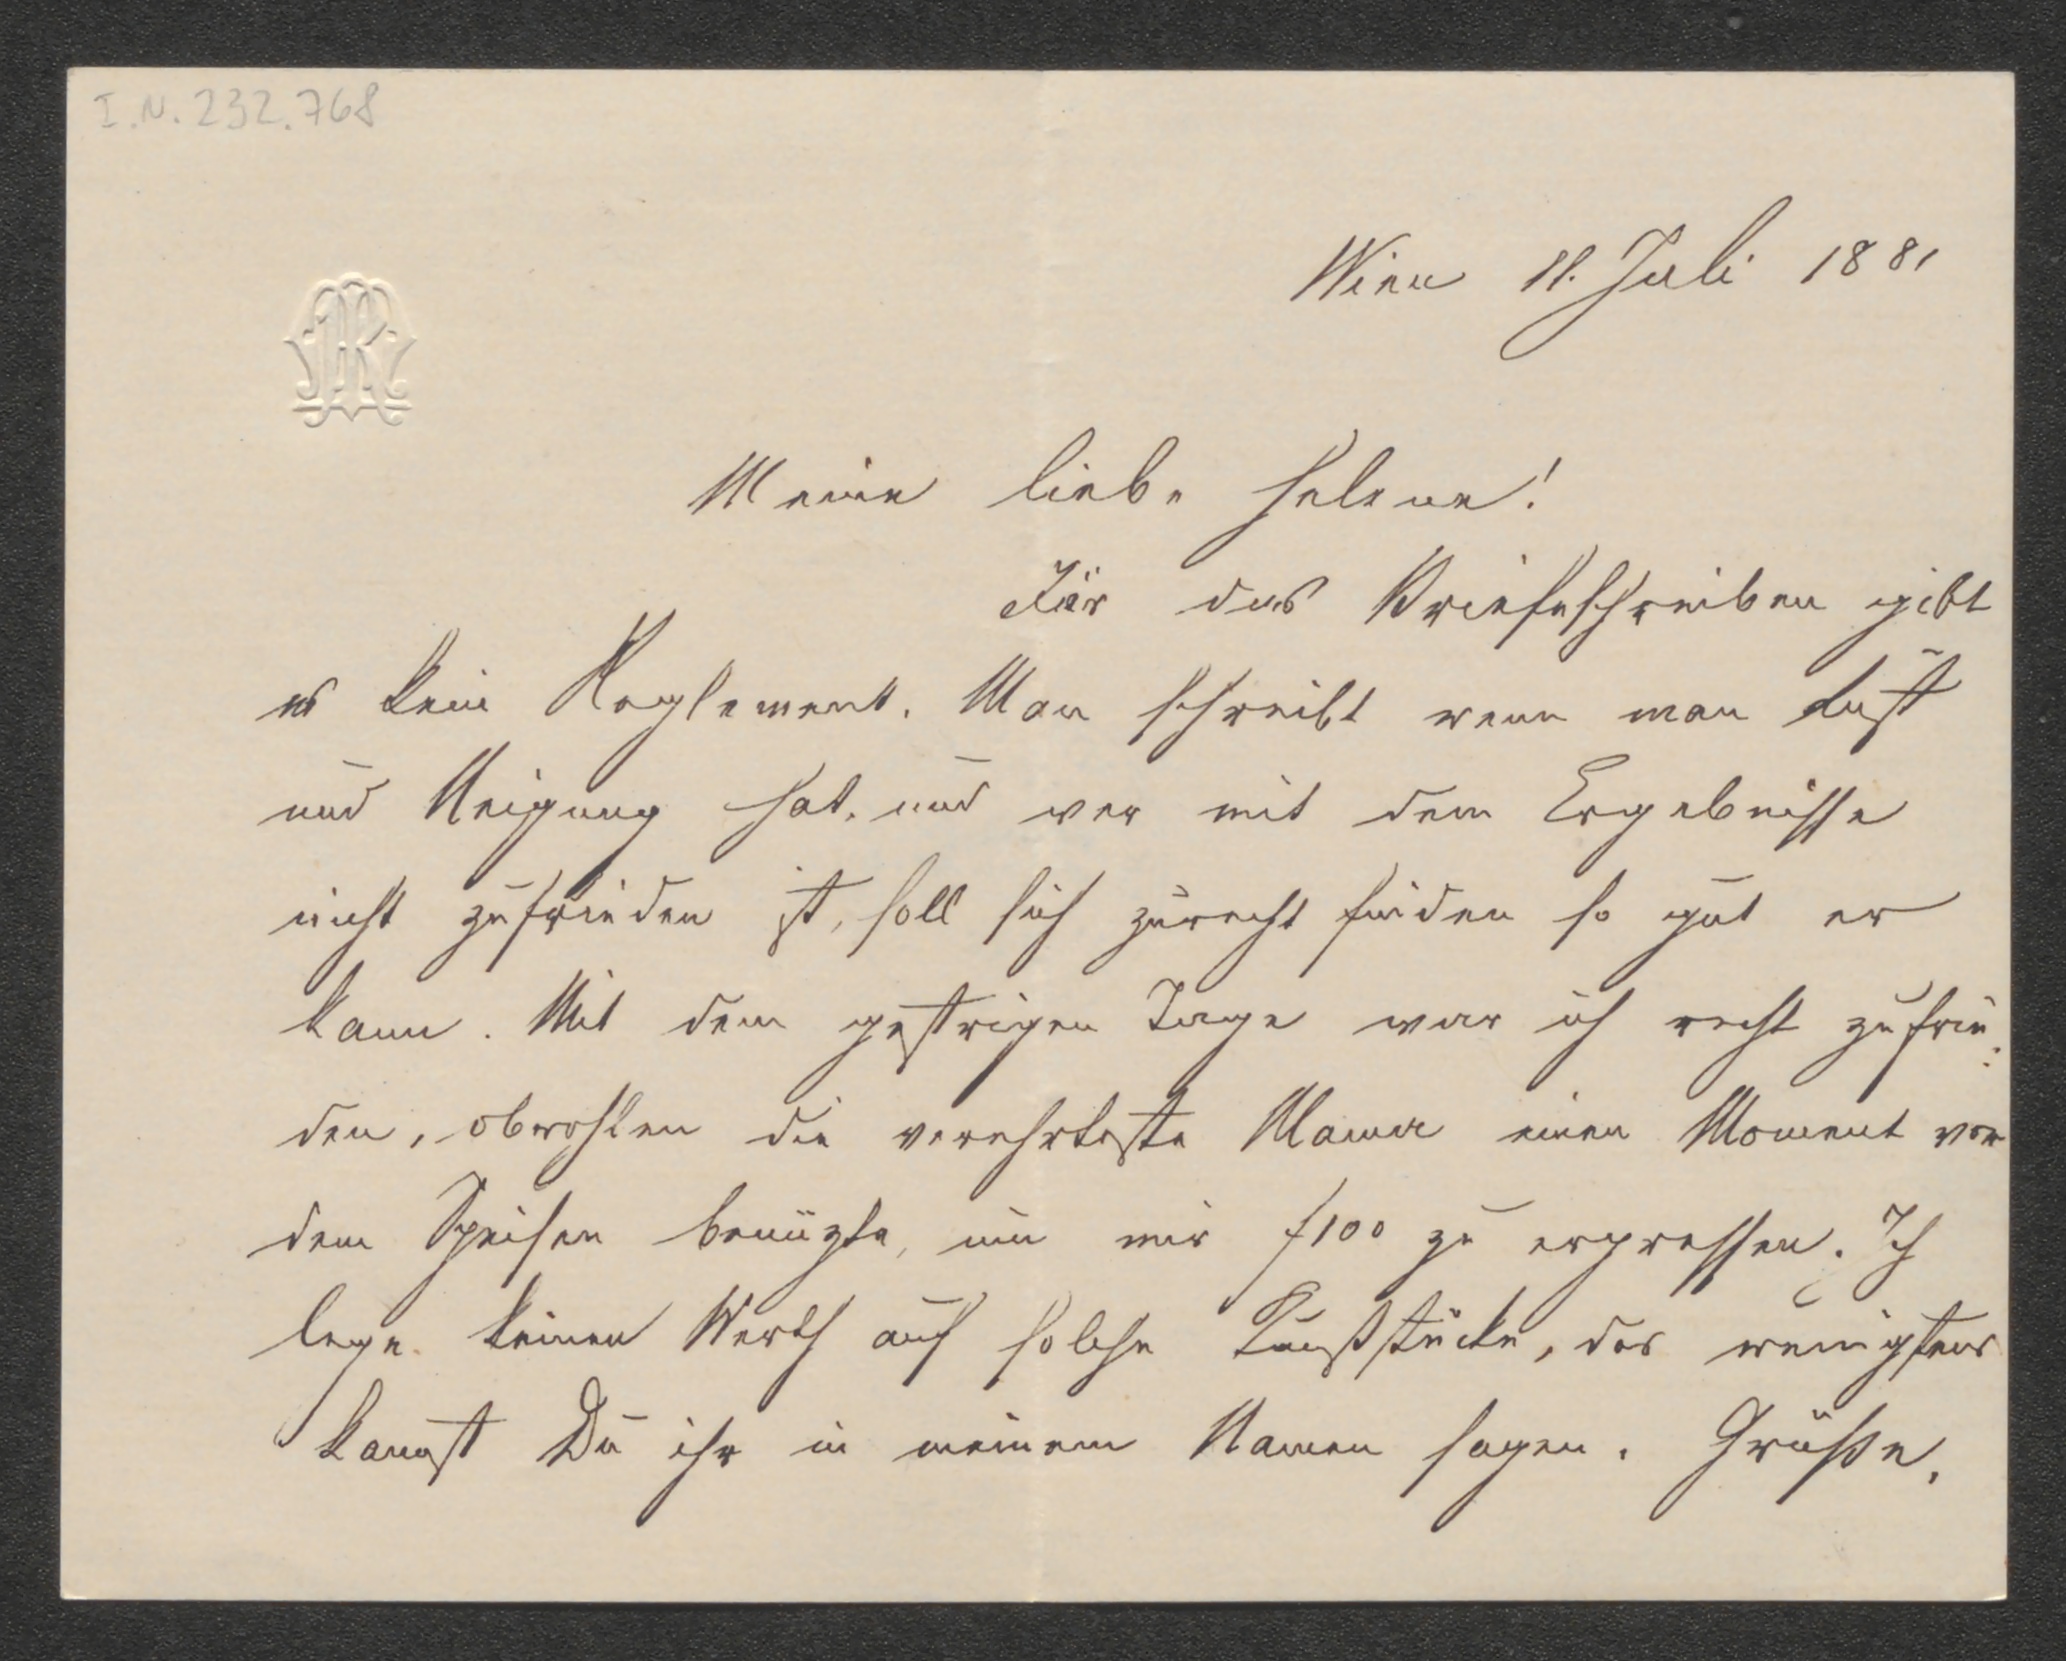 I.N. 232.768
Wien 11. Juli 1881
Meine liebe Helene!
Für das Briefeschreiben gibt
es kein Reglement. Man schreibt wenn man Lust
und Neigung hat, und wer mit dem Ergebnisse
nicht zufrieden ist, soll sich zurecht finden so gut er
kann. Mit dem gestrigen Tage war ich recht zufrie-
den, obwohlen die verehrteste Mama einen Moment vor
dem Speisen benüzte, um mir f100 zu erpressen. Ich
lege keinen Werth auf solche Kunststücke, das wenigstens
kannst Du ihr in meinem Namen sagen. Grüße,